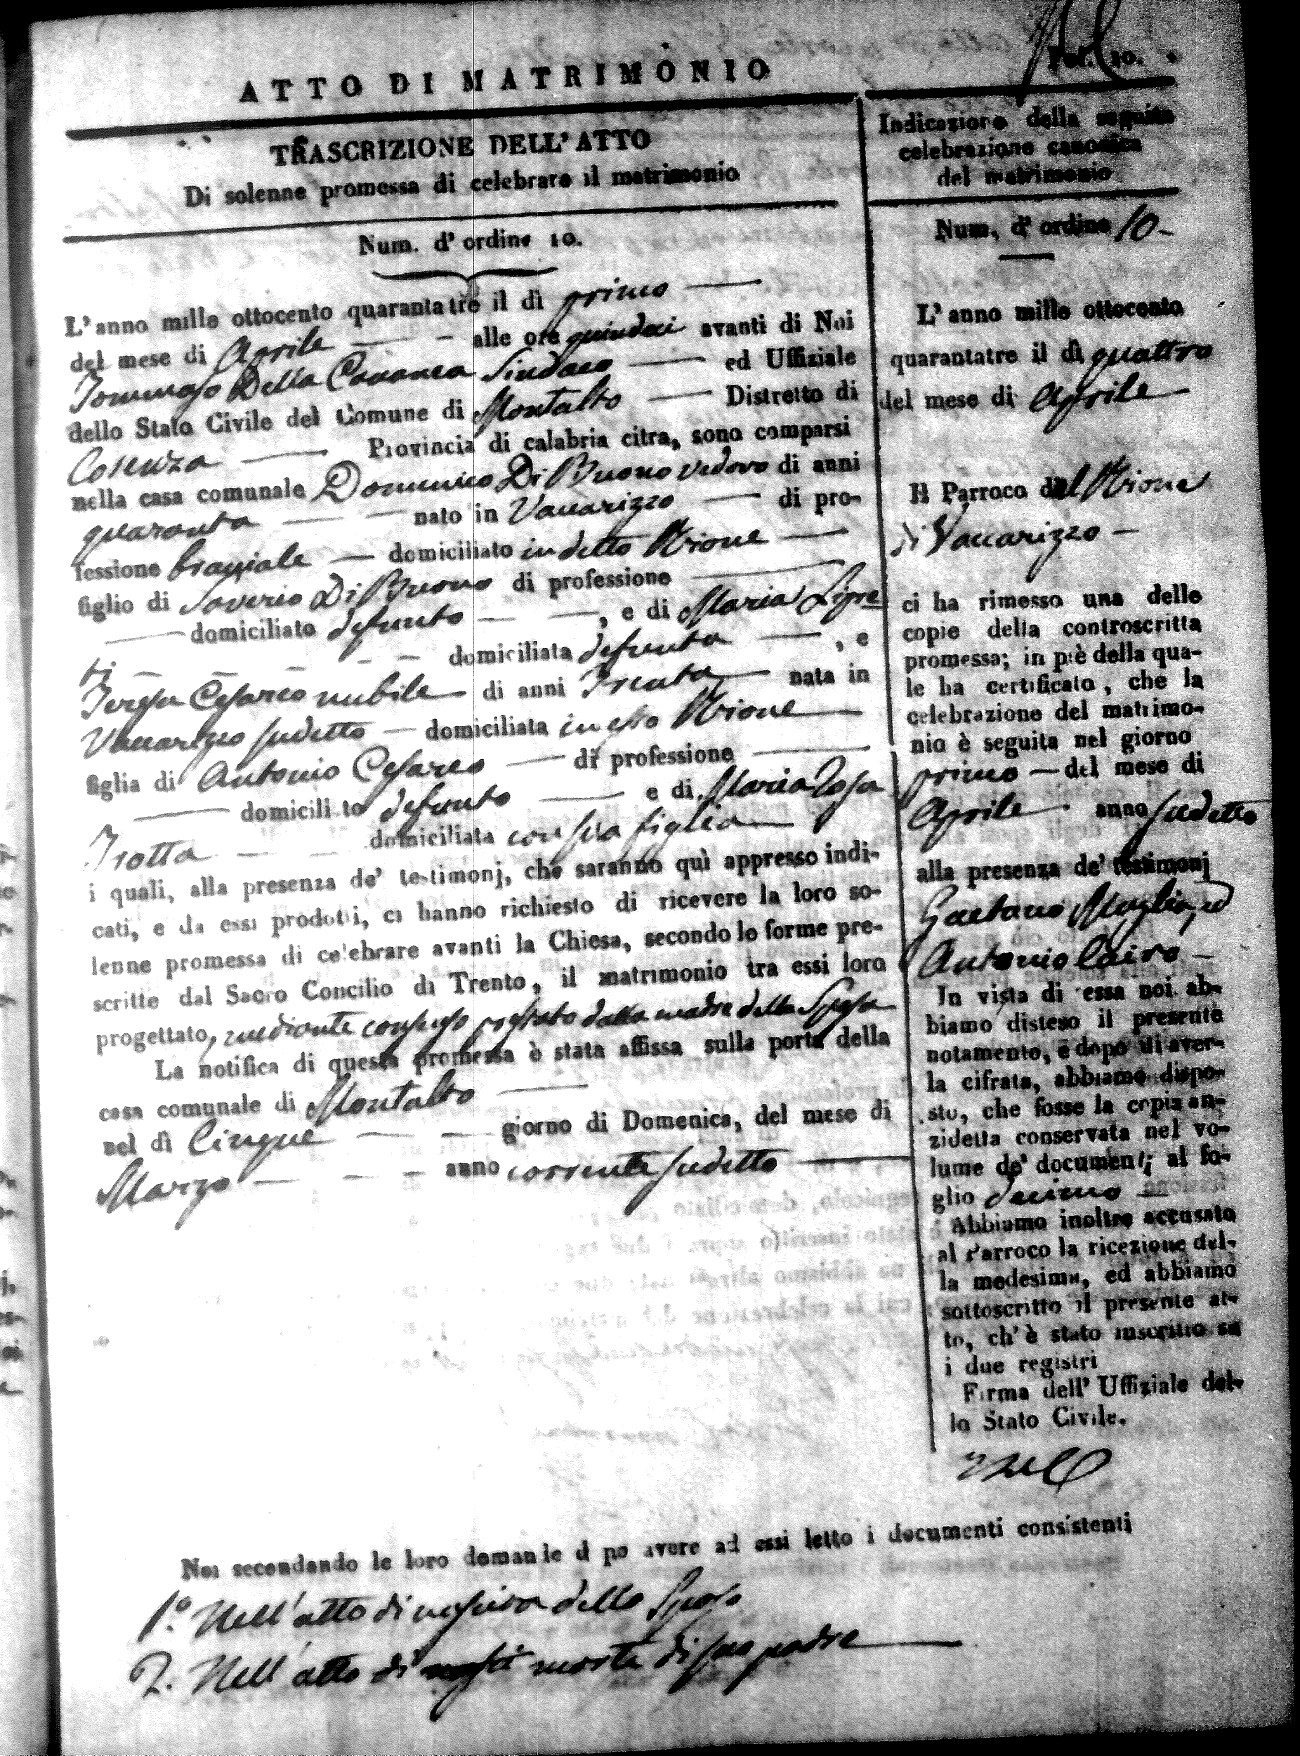 Pol. 10.
ATTO DI MATRIMONIO
TRASCRIZIONE DELL' ATTO
Di solenne promessa di celebrare il matrimonio
Num. d' ordine 10.
L' anno mille ottocento quarantatre il dì primo
del mese di Aprile alle ore quindeci avanti di Noi
Tommaso Della Cananea Sindaco ed Uffiziale
dello Stato Civile del Comune di Montalto Distretto di
Cosenza Provincia di calabria citra, sono comparsi
nella casa comunale Domenico Di Buono vedovo di anni
quaranta nato in Vaccarizzo di pro-
fessione bracciale domiciliato in detto Rione
figlio di Saverio Di Buono di professione
domiciliato defunto , e di Maria Lipre
ti domiciliata defunta , e
Teresa Cesareo nubile di anni Trenta nata in
Vaccarizzo sudetto domiciliata in esso Rione
figlia di Antonio Cesareo di professione
domicili to defunto e di Maria Rosa
Trotta domiciliata con sua figlia
i quali, alla presenza de' testimonj, che saranno quì appresso indi-
cati, e da essi prodotti, ci hanno richiesto di ricevere la loro so-
lenne promessa di celebrare avanti la Chiesa, secondo le forme pre-
scritte dal Sacro Concilio di Trento, il matrimonio tra essi loro
progettato, mediante consenso prestato dalla madre della Sposa
La notifica di questa promessa è stata affissa sulla porta della
casa comunale di Montalto
nel dì Cinque giorno di Domenica, del mese di
Marzo anno corrente sudetto
Indicazione della seguita
celebrazione canonica
del matrimonio
Num. d' ordine 10
L' anno mille ottocento
quarantatre il dì quattro
del mese di Aprile
Il Parroco del Rione
di Vaccarizzo
ci ha rimesso una delle
copie della controscritta
promessa; in piè della qua-
le ha certificato, che la
celebrazione del matrimo-
nio è seguita nel giorno
primo del mese di
Aprile anno sudetto
alla presenza de' testimonj
Gaetano ed
Antonio Cairo
In vista di essa noi ab-
biamo disteso il presente
notamento, e dopo di aver-
la cifrata, abbiamo dispo-
sto, che fosse la copia an-
zidetta conservata nel vo-
lume de' documenti al fo-
glio decimo
Abbiamo inoltre accusato
al Parroco la ricezione del-
la medesima, ed abbiamo
sottoscritto il presente at-
to, ch' è stato inscritto su
i due registri
Firma dell' Uffiziale del-
lo Stato Civile.
Noi secondando le loro domande d po avere ad essi letto i documenti consistenti
1.° Nell' atto di nascita dello Sposo
2. Nell' atto di morte di suo padre